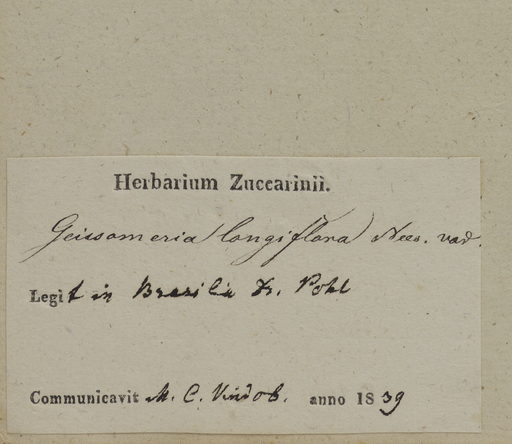 Herbarium Zuccarinii.
Geissomeria longiflora Nees. var.
Legit in Brasilia Dr. Pohl
Communicavit M. C. Vindob. anno 1839